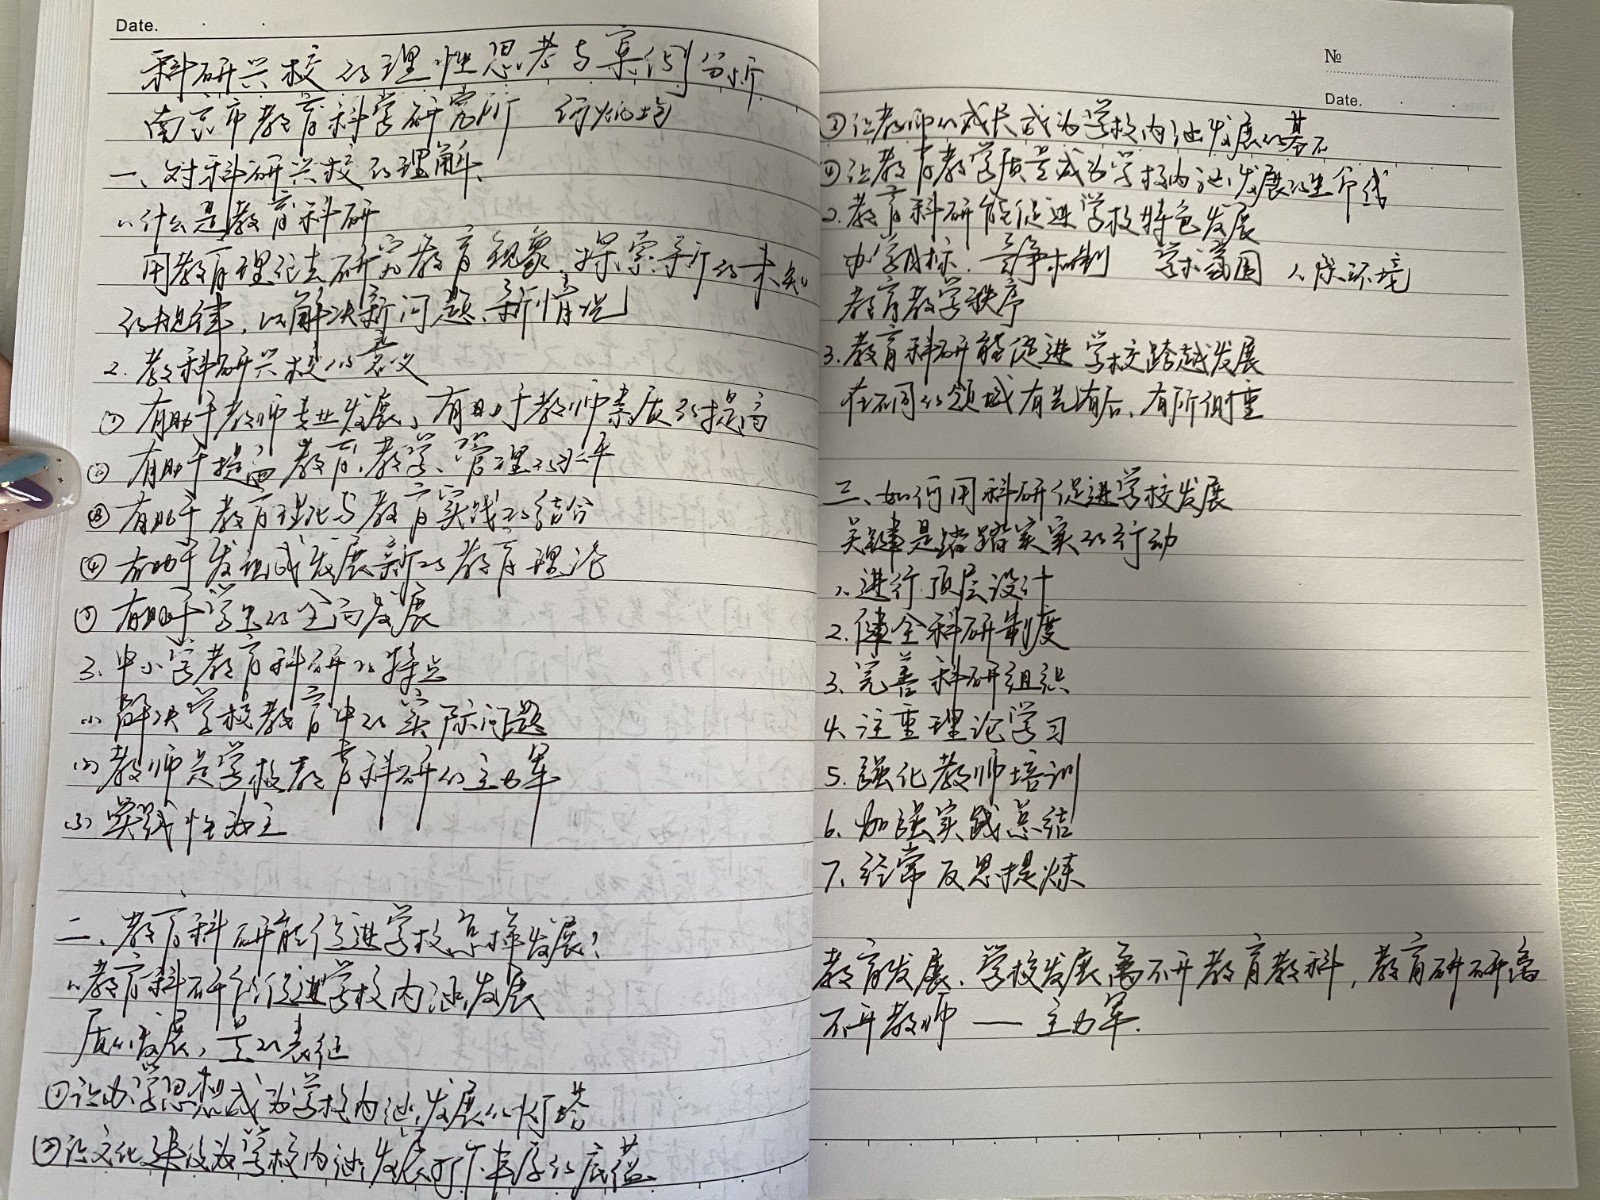 Date.
科研兴校的理性思考与案例分析
南京市教育科学研究所
一、对科研兴校的理解、
1、什么是教育科研
用教育理论去研究教育现象、探索新的未知
的规律，以解决新问题、新情况
2、教科研兴校的意义
① 有助于教师专业发展、有助于教师素质的提高
② 有助于提高教育、教学、管理的水平
③ 有助于教育理论与教育实践的结合
④ 有助于发现或发展新的教育理论
⑤ 有助于学生的全面发展
3、中小学教育科研的特点
(1) 解决学校教育中的实际问题
(2) 教师是学校教育科研的主力军
(3) 实践性为主
二、教育科研能促进学校怎样发展？
1、教育科研能促进学校内涵发展
质的发展，量的表征
①让办学思想成为学校内涵发展的灯塔
②让文化建设为学校内涵发展打下丰厚的底蕴
№
Date.
③让教师的成长成为学校内涵发展的基石
④让教育教学质量成为学校内涵发展的生命线
2、教育科研能促进学校特色发展
办学目标、竞争机制 学术氛围 人际环境
教育教学秩序
3、教育科研能促进学校跨越发展
在不同的领域有先有后、有所侧重
三、如何用科研促进学校发展
关键是踏踏实实的行动
1、进行顶层设计
2、健全科研制度
3、完善科研组织
4、注重理论学习
5、强化教师培训
6、加强实践总结
7、经常反思提炼
教育发展、学校发展离不开教育教科，教育研研离
不开教师 — 主力军.